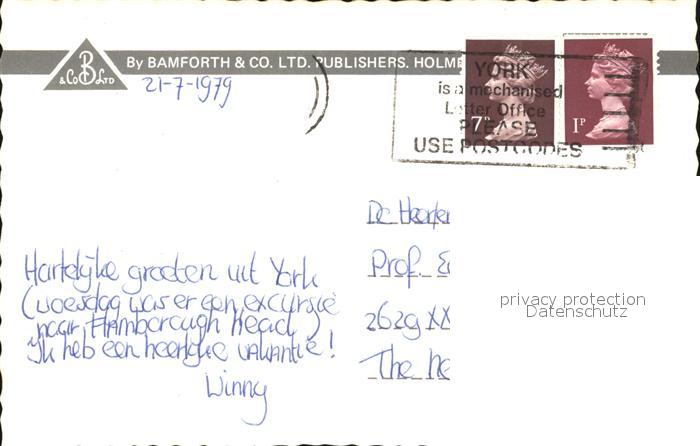 By BAMFORTH & CO. LTD. PUBLISHERS. HOLME
B
& Co LTD
21-7-1979
YORK
is a mechanised
Letter Office
PLEASE
USE POSTCODES
7P
1P
Hartelijke groeten uit York
(woesdag was er een excursie
naar Flamborough Head)
Ik heb een heerlijke vakantie!
Winny
De Heer
Prof.
2629 XX
The Ne
privacy protection
Datenschutz